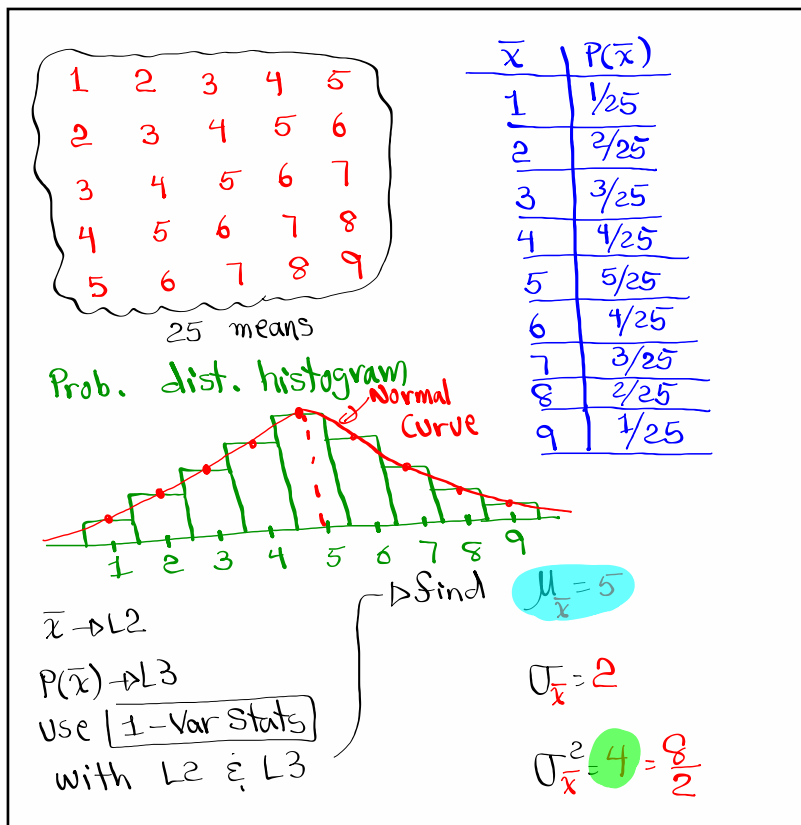 1 2 3 4 5
2 3 4 5 6
3 4 5 6 7
4 5 6 7 8
5 6 7 8 9
25 means
x̄ P(x̄)
1 1/25
2 2/25
3 3/25
4 4/25
5 5/25
6 4/25
7 3/25
8 2/25
9 1/25
Prob. dist. histogram
Normal
Curve
1 2 3 4 5 6 7 8 9
x̄ → L2
P(x̄) → L3
use 1-Var Stats
with L2 & L3
→ find μx̄ = 5
σx̄ = 2
σ²x̄ = 4 = 8/2